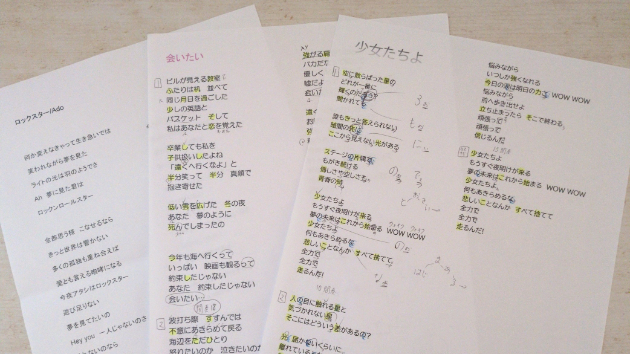 ロックスター/Ado
何か変えなきゃって生き急いでは
笑われながら夢を見た
ライトの光は羽のようで
Ah 夢に見た星は
ロックンロールスター
全部思う様 こなせるなら
きっと世界は響かない
多くの孤独も重ね合えば
愛とも言える咆哮になる
今夜アタシはロックスター
遊び足りない
夢を見てたいの
Hey you 一人じゃないのさ
会いたい
1
ビルが見える教室で
ふたりは机 並べて
同じ月日を過ごした
少しの英語と
バスケット そして
私はあなたと恋を覚えた
卒業しても私を
子供扱いしたよね
「遠くへ行くなよ」と
半分笑って 半分 真顔で
抱き寄せた
低い雲を広げた 冬の夜
あなた 夢のように
死んでしまったの
今年も海へ行くって
いっぱい 映画も観るって
約束したじゃない
あなた 約束したじゃない
会いたい
2
波打ち際 すすんでは
不意にあきらめて戻る
海辺をただひとり
怒りたいのか 泣きたいのか
少女たちよ
1
空に散らばった星の
どれが一番に
輝くのだろう?
聞かれても
誰もきっと答えられない
暗闇の先は
ここから見えない光がある
ステージの片隅で
もがき続ける
悔しさや苦しさは
青春の糧
少女たちよ
もうすぐ夜明けが来る
夢の未来はこれから始まる WOW WOW
少女たちよ
何もあきらめるな
悲しいことなんか すべて捨てて
全力で
全力で
走るんだ!
2
人の目に触れる星と
気づかれない星
そこにはどういう差があるの?
悩みながら
いつしか強くなれる
今日の涙は明日の力さ WOW WOW
悩みながら
前へ歩き出せよ
立ち止まったら そこで終わる。
頑張って
頑張って
信じるんだ
少女たちよ
もうすぐ夜明けが来る
夢の未来はこれから始まる WOW WOW
少女たちよ、
何もあきらめるな
悲しいことなんか すべて捨てて
全力で
全力で
走るんだ!